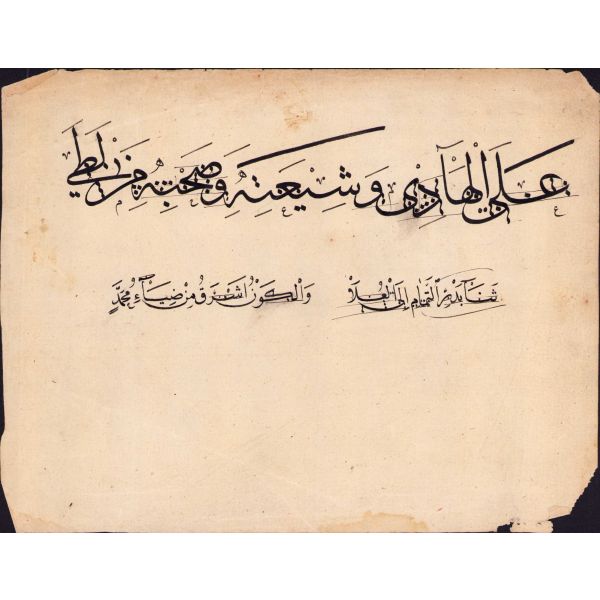 عَلَى الْهَادِي وَشِيعَتِهِ وَصَحْبِهِ مَنْ
بَدْرُ التَّمَامِ إِلَى الْعُلَا وَالْكَوْنُ أَشْرَقَ مِنْ ضِيَاءِ مُحَمَّدٍ